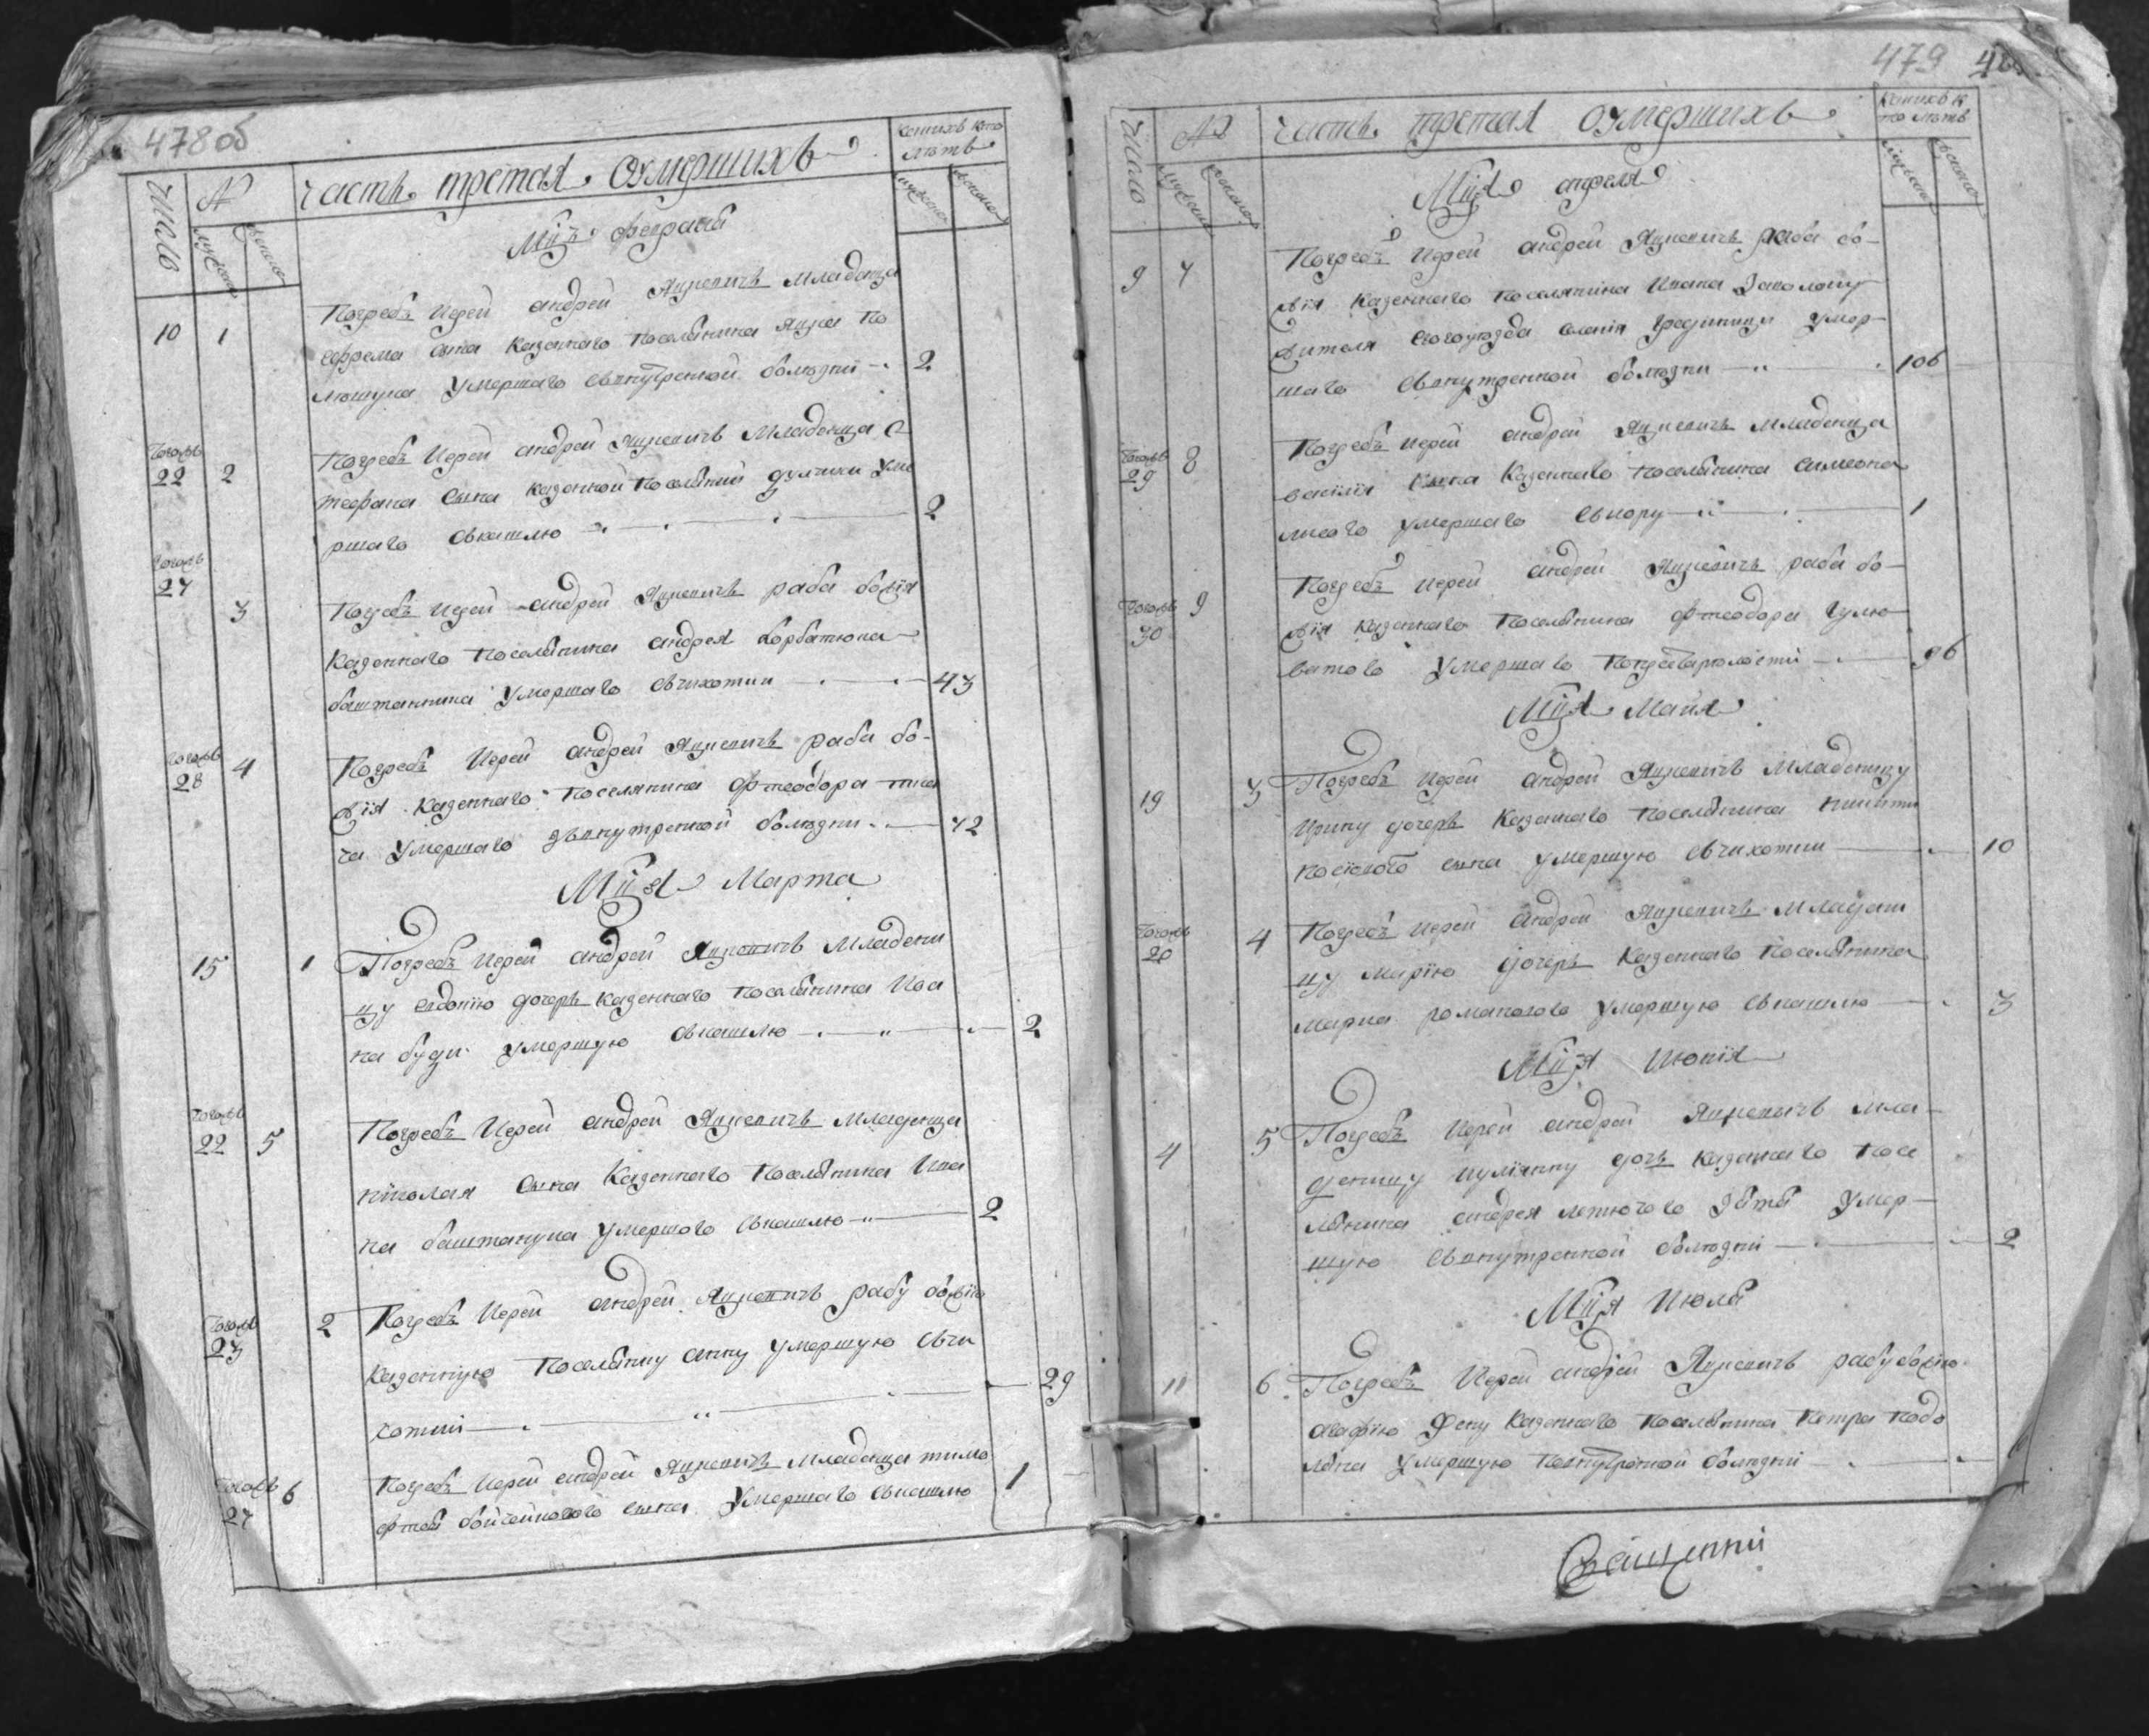 478об
Число
№
мужеска
женска
часть третая оумершихъ
коликихъ кто
лѣтъ
мужеска
женска
Мцъ февраля
10 1
Погребъ Иерей андрей Яцкевичъ Младенца
ефрема сына казеннаго поселянина Яцка По
умершаго свнутренной болѣзни 2
тогожъ
22 2
Погребъ Иерей андрей Яцкевичъ Младенца с
тефана сына казенной поселянки уме
ршаго свкашлю 2
тогожъ
27
3
Погребъ Иерей андрей Яцкевичъ раба божія
Казеннаго поселянина андрея Горбатюка
баштанника умершаго свчихотки 43
тогожъ
28 4
Погребъ Иерей андрей Яцкевичъ раба бо-
жія казеннаго поселянина Фтеодора тка
ча умершаго звнутренной болѣзни 72
МцА Марта
15 1
Погребъ Иерей андрей Яцкевичъ Младени
цу евдокію дочерь казеннаго поселянина Ива
на буци умершую свкашлю 2
тогожъ
22 5
Погребъ Иерей андрей Яцкевичъ Младенца
николая сына Казеннаго поселянина Ива
на баштанука умершого свкашлю 2
тогожъ
23 2
Погребъ Иерей андрей Яцкевичъ рабу божію
казенную поселянку анну умершую свчи
хотки 29
тогожъ
27 6
Погребъ Иерей андрей Яцкевичъ Младенца тимо
фтея бойчейкового сына умершаго свкашлю 1
479
Число
№
мужеска
женска
часть третая оумершихъ
коликихъ к
то лѣтъ
мужеска
женска
МцА апреля
9 7
Погребъ Иерей андрей Яцкевичъ раба бо-
жія казеннаго поселянина Ивана
жителя сегоуезда умер-
шаго свнутренной болѣзни 106
тогожъ
29 8
Погребъ иерей андрей Яцкевичъ младенца
василія сына казеннаго поселянина симеона
лисого умершаго свкору 1
тогожъ
30 9
Погребъ иерей андрей Яцкевичъ раба бо-
жія казеннаго поселянина фтеодора Гулю
ватого умершаго 96
МцА Маия
19 3
Погребъ иерей андрей Яцкевичъ Младеницу
Ирину дочерь Казеннаго поселянина никити
сына умершую свчихотки 10
тогожъ
20 4
Погребъ иерей андрей Яцкевичъ Младени
цу Марію дочерь казеннаго поселянина
Марка романового умершую свкашлю 3
МцА Июнія
4 5
Погребъ Иерей андрей Яцкевичъ мла-
деницу иуліянну дочь казеннаго посе
лянина андрея зятя умер-
шую свнутренной болѣзни 2
МцА Июля
11 6
Погребъ Иерей андрей Яцкевичъ рабу божію
агафію Жену казеннаго поселянина Петра подо
ляка умершую болѣзни